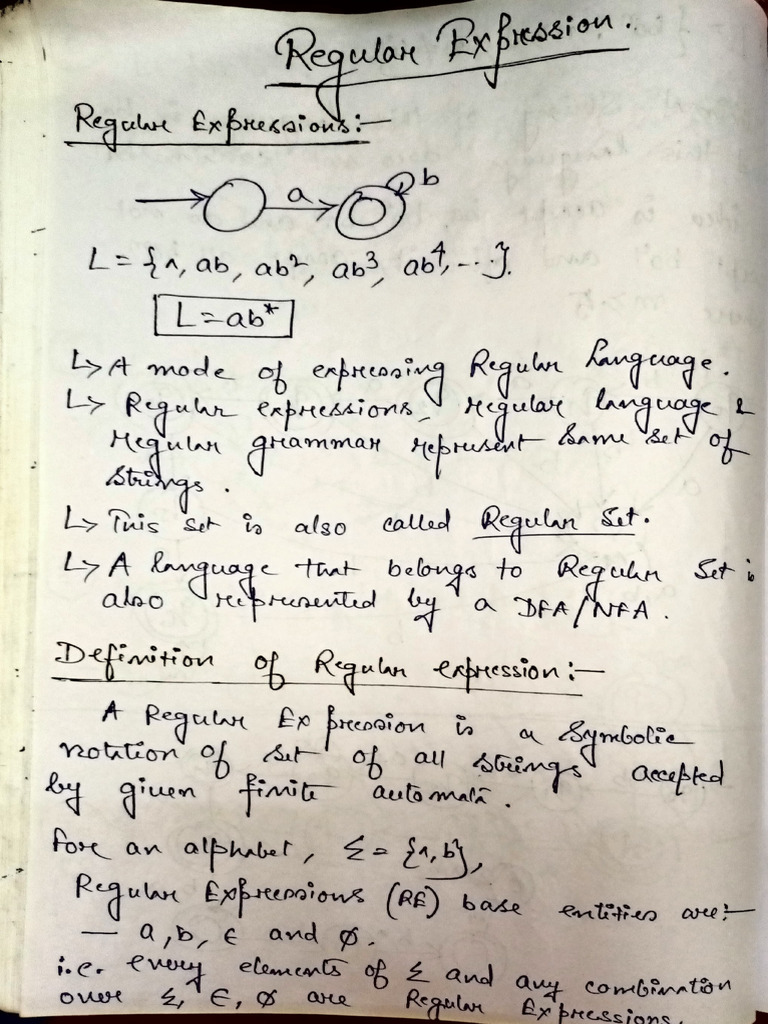 Regular Expression.
Regular Expressions:-
a b
L = {a, ab, ab², ab³, ab⁴, ...}.
L = ab*
↳ A mode of expressing Regular Language.
↳ Regular expressions, regular language &
regular grammar represent same set of
strings.
↳ This set is also called Regular Set.
↳ A language that belongs to Regular Set is
also represented by a DFA/NFA.
Definition of Regular expression:-
A Regular Expression is a Symbolic
notation of set of all strings accepted
by given finite automata.
For an alphabet, Σ = {a, b},
Regular Expressions (RE) base entities are:-
— a, b, ϵ and ϕ.
i.e. every elements of Σ and any combination
over Σ, ϵ, ϕ are Regular Expressions.